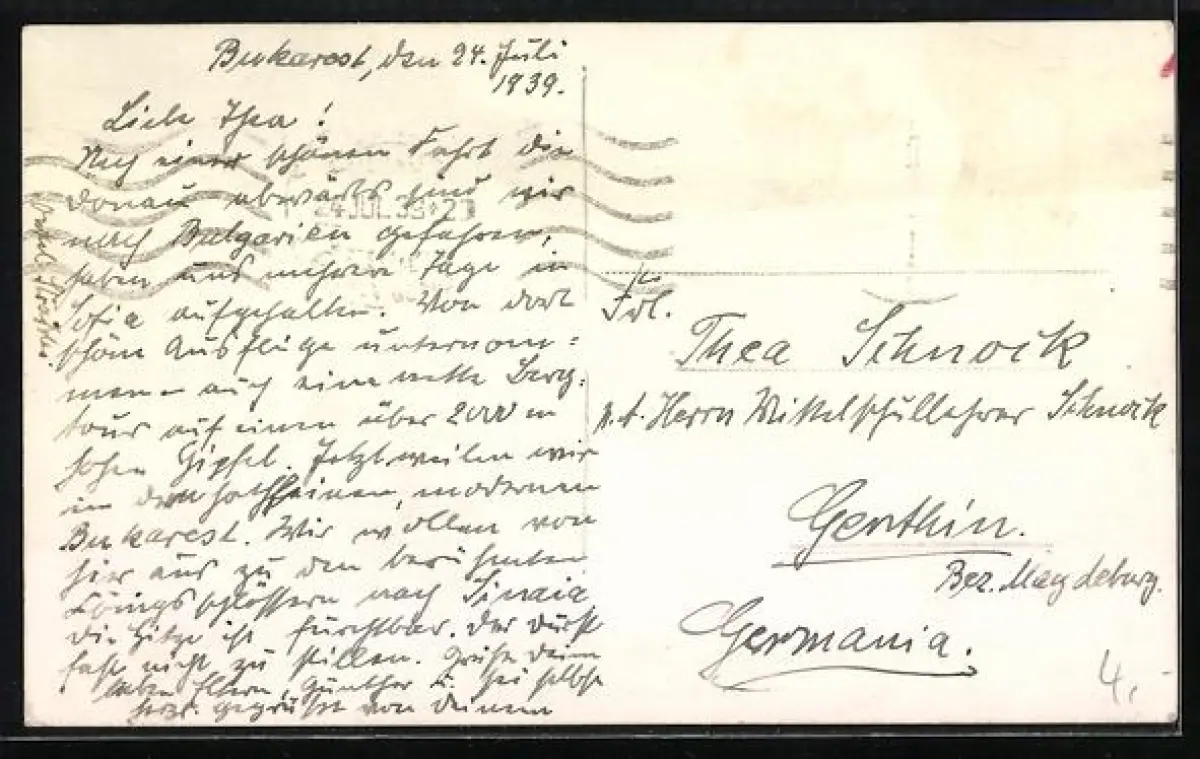 Bukarest, den 24. Juli
1939.
Liebe Thea!
Nach einer schönen Fahrt die
Donau abwärts sind wir
nach Bulgarien gefahren,
haben uns mehrere Tage in
Sofia aufgehalten. Von dort
schöne Ausflüge unternom=
men - auch eine nette Berg=
tour auf einen über 2000 m
hohen Gipfel. Jetzt weilen wir
in dem modernen
Bukarest. Wir wollen von
hier aus zu den berühmten
Königsschlössern nach Sinaia
Die Hitze ist furchtbar. Der Durst
fast nicht zu stillen. Grüße Deine
lieben Eltern, Günther u. sei selbst
herzl. gegrüßt von Deinem
24 JUL 39
Frl.
Thea Schnock
Herrn Mittelschullehrer Schnock
Genthin.
Bez. Magdeburg.
Germania.
4,-